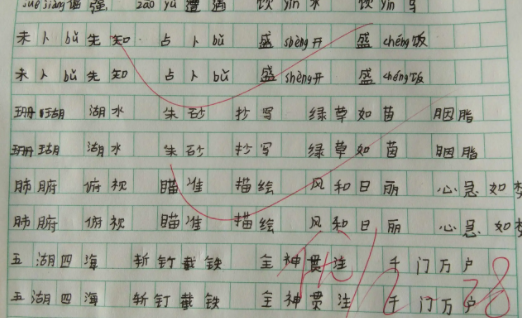 juè jiàng 倔强 zāo yù 遭遇 饮 yǐn 水 饮 yìn 马
未卜 bǔ 先知 占卜 bǔ 盛 shèng 开 盛 chéng 饭
未卜 bǔ 先知 占卜 bǔ 盛 shèng 开 盛 chéng 饭
珊瑚 湖水 朱砂 抄写 绿草如茵 胭脂
珊瑚 湖水 朱砂 抄写 绿草如茵 胭脂
肺腑 俯视 瞄准 描绘 风和日丽 心急如
肺腑 俯视 瞄准 描绘 风和日丽 心急如
五湖四海 斩钉截铁 全神贯注 千门万户
五湖四海 斩钉截铁 全神贯注 千门万户